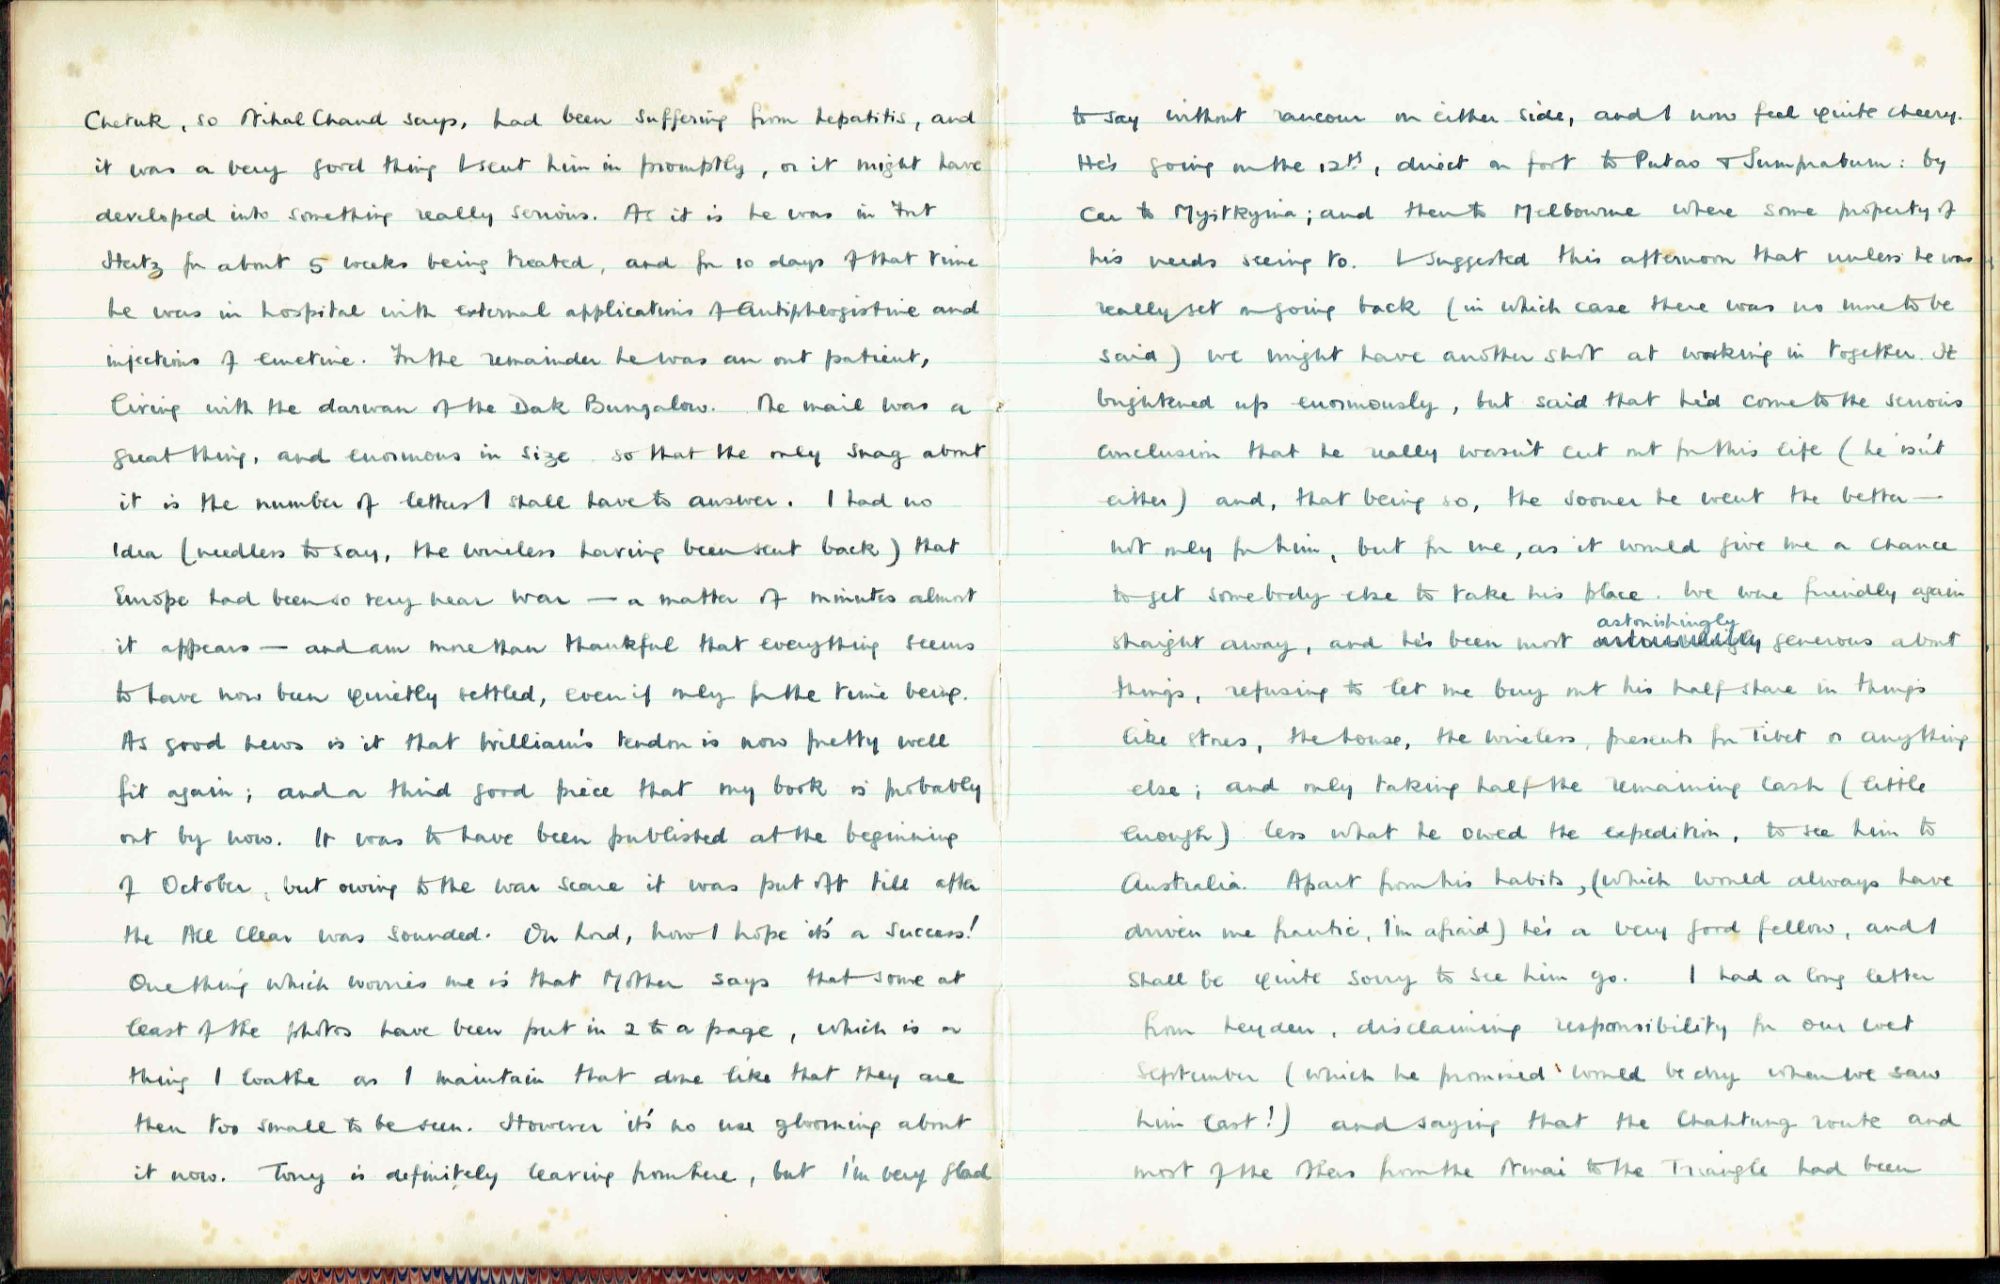 Chetuk, so Nihal Chand says, had been suffering from hepatitis, and
it was a very good thing I sent him in promptly, or it might have
developed into something really serious. As it is he was in Fort
Hertz for about 5 weeks being treated, and for 10 days of that time
he was in hospital with external applications of Antiphlogistine and
injections of emetine. For the remainder he was an out patient,
living with the darwan of the Dak Bungalow. The mail was a
great thing, and enormous in size so that the only snag about
it is the number of letters I shall have to answer. I had no
idea (needless to say, the wireless having been sent back) that
Europe had been so very near war — a matter of minutes almost
it appears — and am more than thankful that everything seems
to have now been quietly settled, even if only for the time being.
As good news is it that William's tendon is now pretty well
fit again; and a third good piece that my book is probably
out by now. It was to have been published at the beginning
of October, but owing to the war scare it was put off till after
the All Clear was sounded. Oh Lord, how I hope it's a success!
One thing which worries me is that Mother says that some at
least of the photos have been put in 2 to a page, which is a
thing I loathe as I maintain that done like that they are
then too small to be seen. However it's no use glooming about
it now. Tony is definitely leaving from here, but I'm very glad
to say without rancour on either side, and I now feel quite cheery.
He's going on the 12th, direct on foot to Putao & Sumprabum: by
car to Myitkyina; and then to Melbourne where some property of
his needs seeing to. I suggested this afternoon that unless he was
really set on going back (in which case there was no more to be
said) we might have another shot at working in together. It
brightened up enormously, but said that he'd come to the serious
conclusion that he really wasn't cut out for this life (he isn't
either) and, that being so, the sooner he went the better —
not only for him, but for me, as it would give me a chance
to get somebody else to take his place. We were friendly again
straight away, and he's been most astonishingly generous about
things, refusing to let me buy out his half share in things
like stores, the house, the wireless, presents for Tibet or anything
else; and only taking half the remaining cash (little
enough) less what he owed the expedition, to see him to
Australia. Apart from his habits, (which would always have
driven me frantic, I'm afraid) he's a very good fellow, and I
shall be quite sorry to see him go. I had a long letter
from Leyden, disclaiming responsibility for our wet
September (which he promised would be dry when we saw
him last!) and saying that the Chahtung route and
most of the others from the Nmai to the Triangle had been